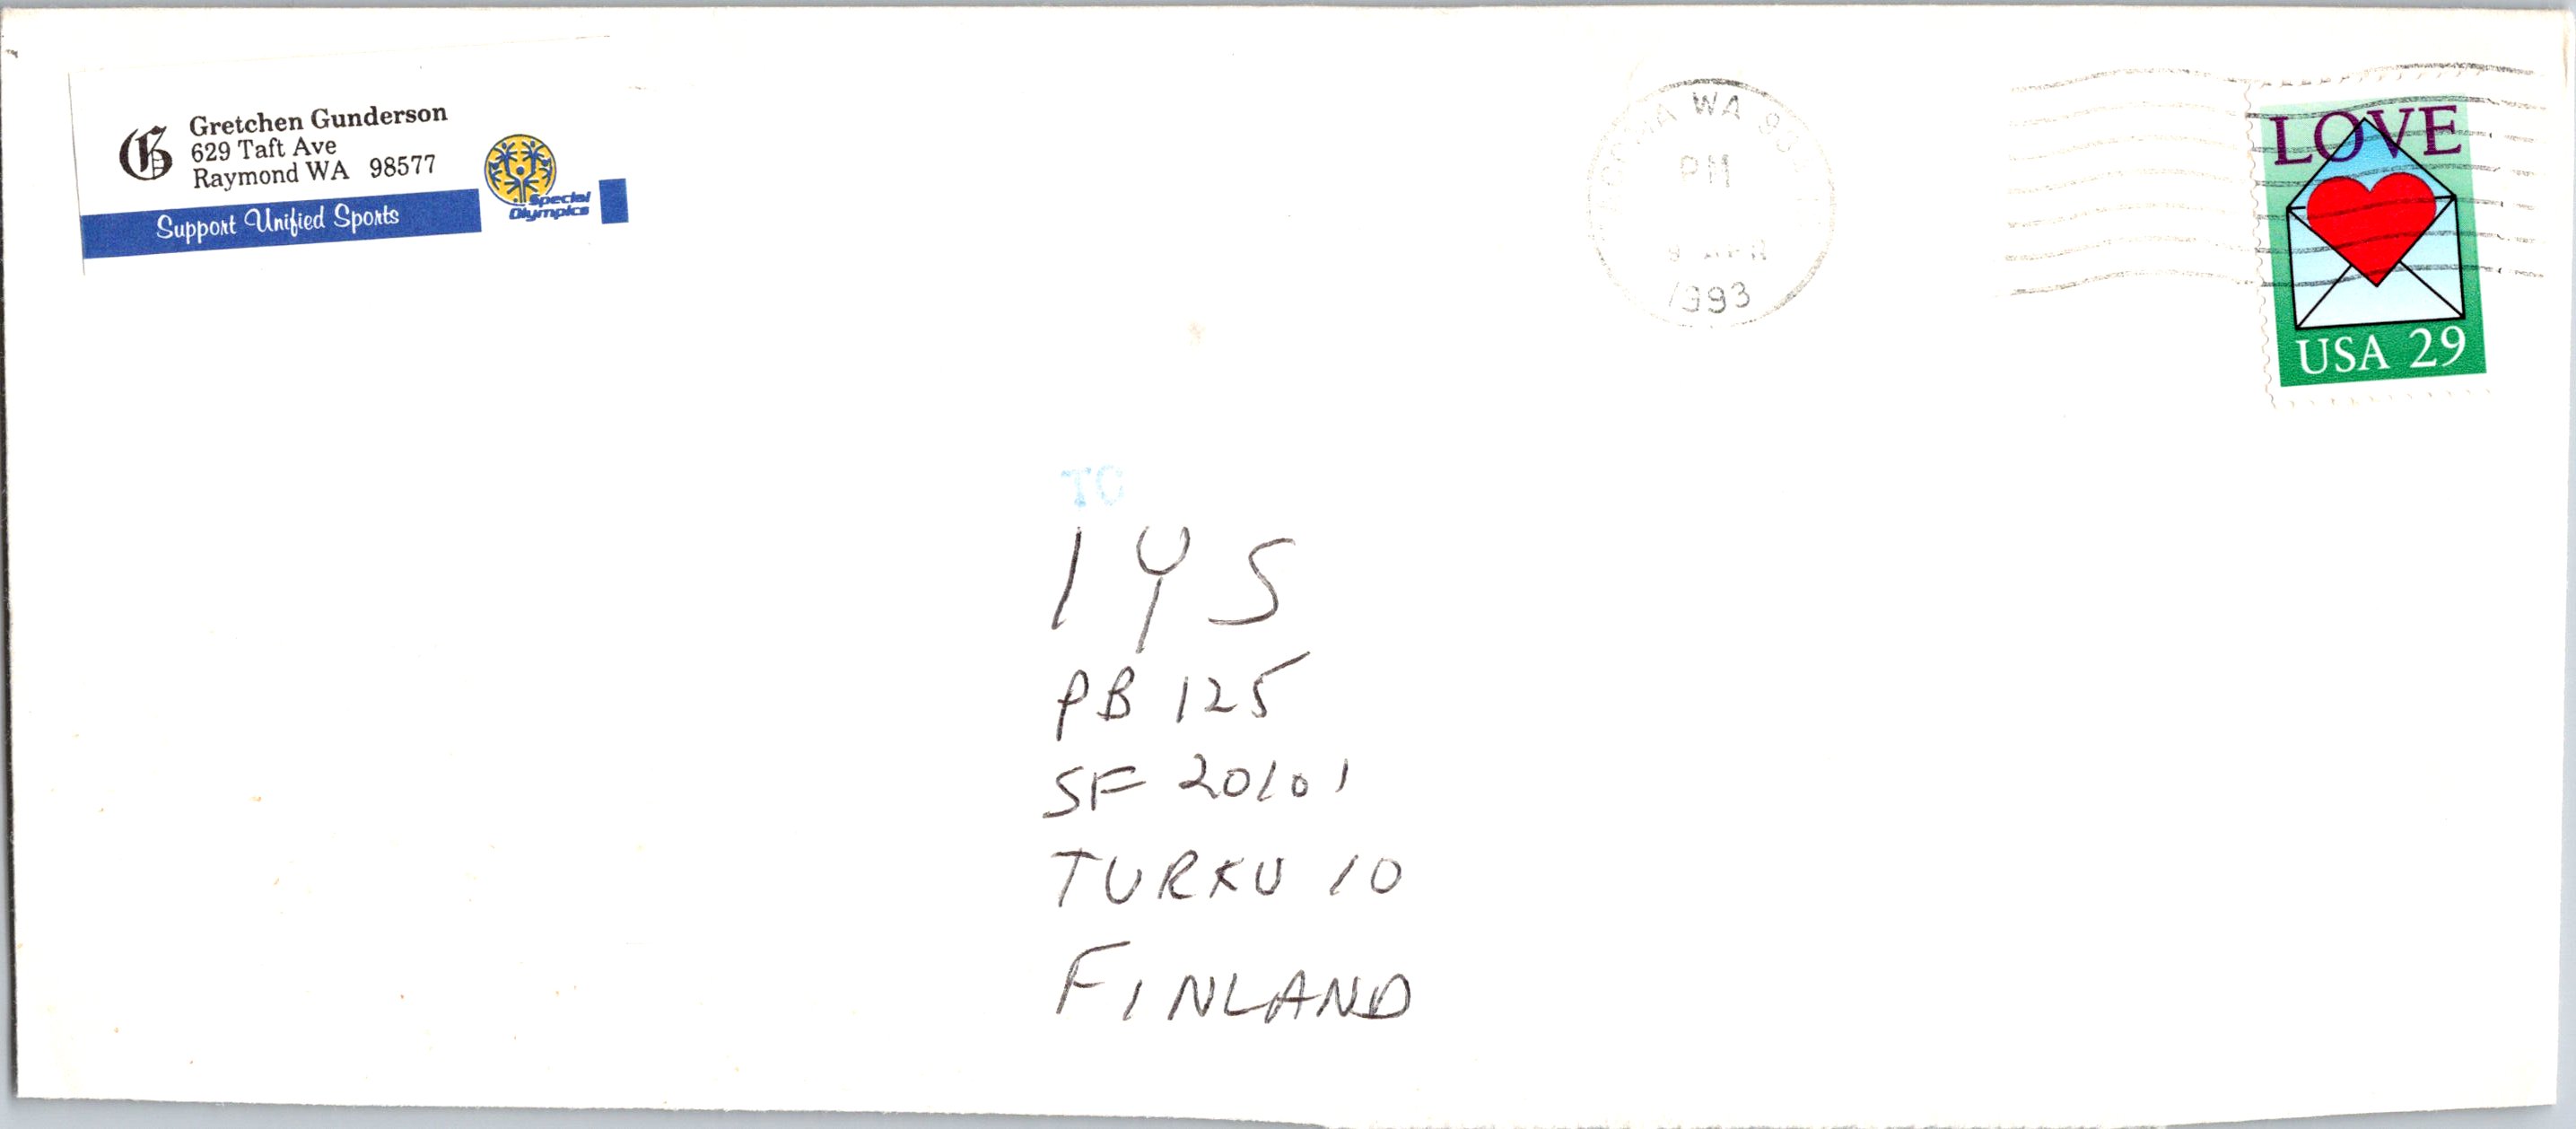 G
Gretchen Gunderson
629 Taft Ave
Raymond WA 98577
Support Unified Sports
Special
Olympics
WA
PM
1993
LOVE
USA 29
TO
IYS
PB 125
SF 20101
TURKU 10
FINLAND